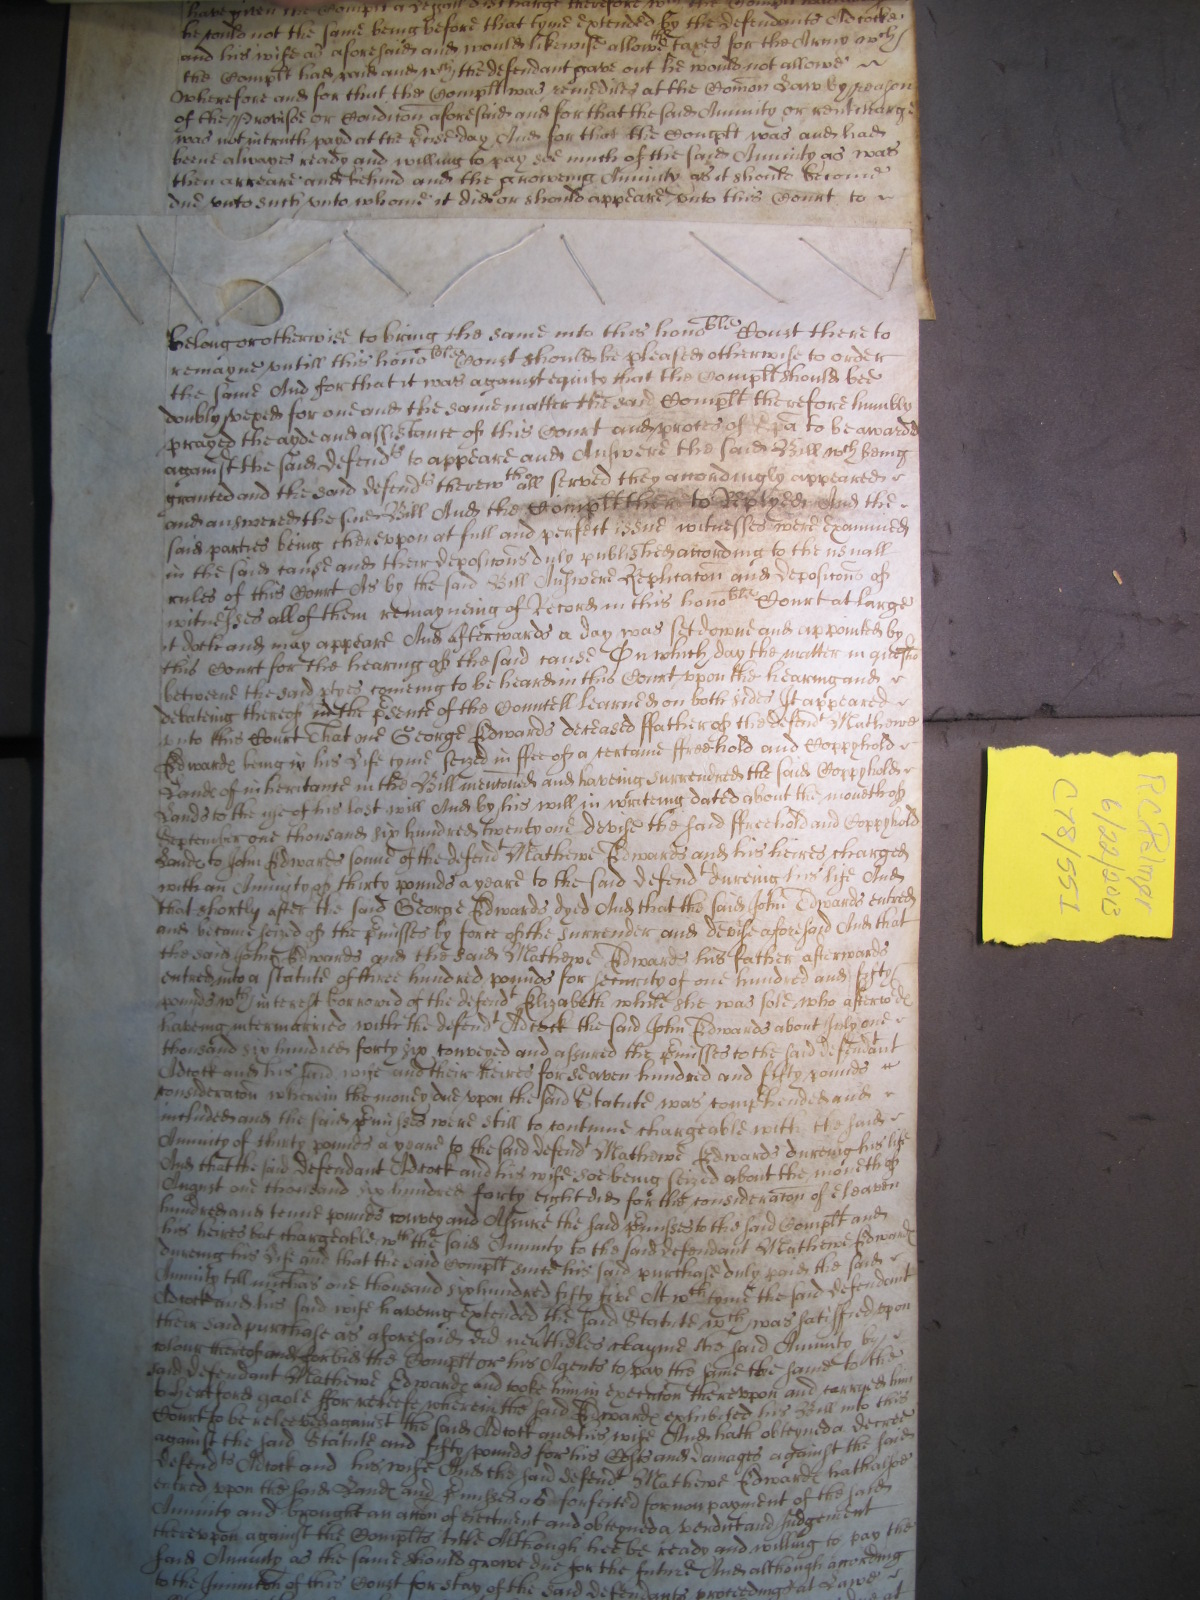 have given the Complt a legall discharge therefore
he could not the same being before that tyme extended by the defendants Adcocke
and his wife as aforesaid and would likewise allowe the taxes for the Army wch
the Complt had paid and wch the defendant gave out he would not allowe
Wherefore and for that the Complt was remediles at the Comon Law by reason
of the Provisoe or Condicon aforesaid and for that the said Annuity or rentcharge
was not in truth payd at the precise day And for that the Complt was and had
beene alwayes ready and willing to pay soe much of the said Annuity as was
then arreare and behind and the groweing Annuity as it should become
due unto such unto whome it did or should appeare unto this Court to
belong or otherwise to bring the same into this honoble Court there to
remayne untill this honoble Court should be pleased otherwise to order
the same And for that it was against equity that the Complt should bee
doubly vexed for one and the same matter the said Complt therefore humbly
prayed the ayde and assistance of this Court and proces of Spa to be awarded
against the said Defendts to appeare and Answere the said Bill wch being
granted and the said defendts therewthall served they accordingly appeared
and answered the said Bill And the Complt thereto Replyed And the
said parties being thereupon at full and perfect issue witnesses were examined
in the said cause and their depositons duly published according to the usuall
rules of this Court As by the said Bill Answere Replicaton and depositons of
witnesses all of them remayneing of Record in this honoble Court at large
it doth and may appeare And afterwards a day was set downe and appointed by
this Court for the hearing of the said cause On which day the matter in question
betweene the said ptyes comeing to be heard in this Court upon the hearing and
debateing thereof in the psence of the Councell Learned on both sides It appeared
unto this Court That one George Edwards deceased ffather of the defendt Mathewe
Edwards being in his Life tyme seized in ffee of a certaine ffreehold and Coppyhold
Lands of inheritance in the Bill mentoned and haveing surrendred the said Coppyhold
Lands to the use of his last will And by his will in writeing dated about the moneth of
September one thousand six hundred twenty one devise the said ffreehold and Coppyhold
Lands to John Edwards sonne of the defendt Mathewe Edwards and his heires charged
with an Annuity of thirty pounds a yeare to the said defendt dureing his life And
that shortly after the said George Edwards dyed And that the said John Edwards entred
and became seized of the pmisses by force of the surrender and devise aforesaid And that
the said John Edwards and the said Mathewe Edwards his father afterwards
entred into a statute of three hundred pounds for security of one hundred and fifty
pounds wth interest borrowed of the defendt Elizabeth while she was sole who afterwds
haveing intermarried with the defendt Adcock the said John Edwards about July one
thousand six hundred forty six conveyed and assured the pmisses to the said defendant
Adcock and his said wife and their heires for seaven hundred and fifty pounds
consideraton wherein the money due upon the said Statute was comprehended and
included and the said pmisses were still to continue chargeable with the said
Annuity of thirty pounds a yeare to the said defendt Mathewe Edwards dureing his life
And that the said defendant Adcock and his wife soe being seized about the moneth of
August one thousand six hundred forty eight did for the consideraton of eleaven
hundred and tenne pounds convey and Assure the said pmisses to the said Complt and
his heires but chargeable wth the said Annuity to the said defendant Mathewe Edwards
dureing his Life and that the said Complt since his said purchase duly paid the said
Annuity till michas one thousand sixhundred fifty five At wch tyme the said defendant
Adcock and his said wife haveing extended the said Statute wch was satisfied upon
their said purchase as aforesaid did neverthelesse clayme the said Annuity by
colour thereof and forbid the Complt or his Agents to pay the same the same to the
said defendant Mathewe Edwards and tooke him in execution thereupon and carryed him
to hertford gaole ffor releefe wherein the said Edwards exhibited his Bill into this
Court to be releeved against the said Adcott and his wife And hath obteyned a decree
against the said Statute and fifty pounds for his Costs and damages against the said
defendts Adcock and his wife And the said defendt Mathewe Edwards hath alsoe
entred upon the said Lands and pmisses as forfeited for non payment of the said
Annuity and brought an acton of ejectment and obteyned a verdict and Judgement
thereupon against the Complts title Although hee be ready and willing to pay the
said Annuity as the same should growe due for the future And although according
to the Injuncton of this Court for stay of the said defendants proceedings at Lawe
RCPalmer
6/22/2013
C78/551